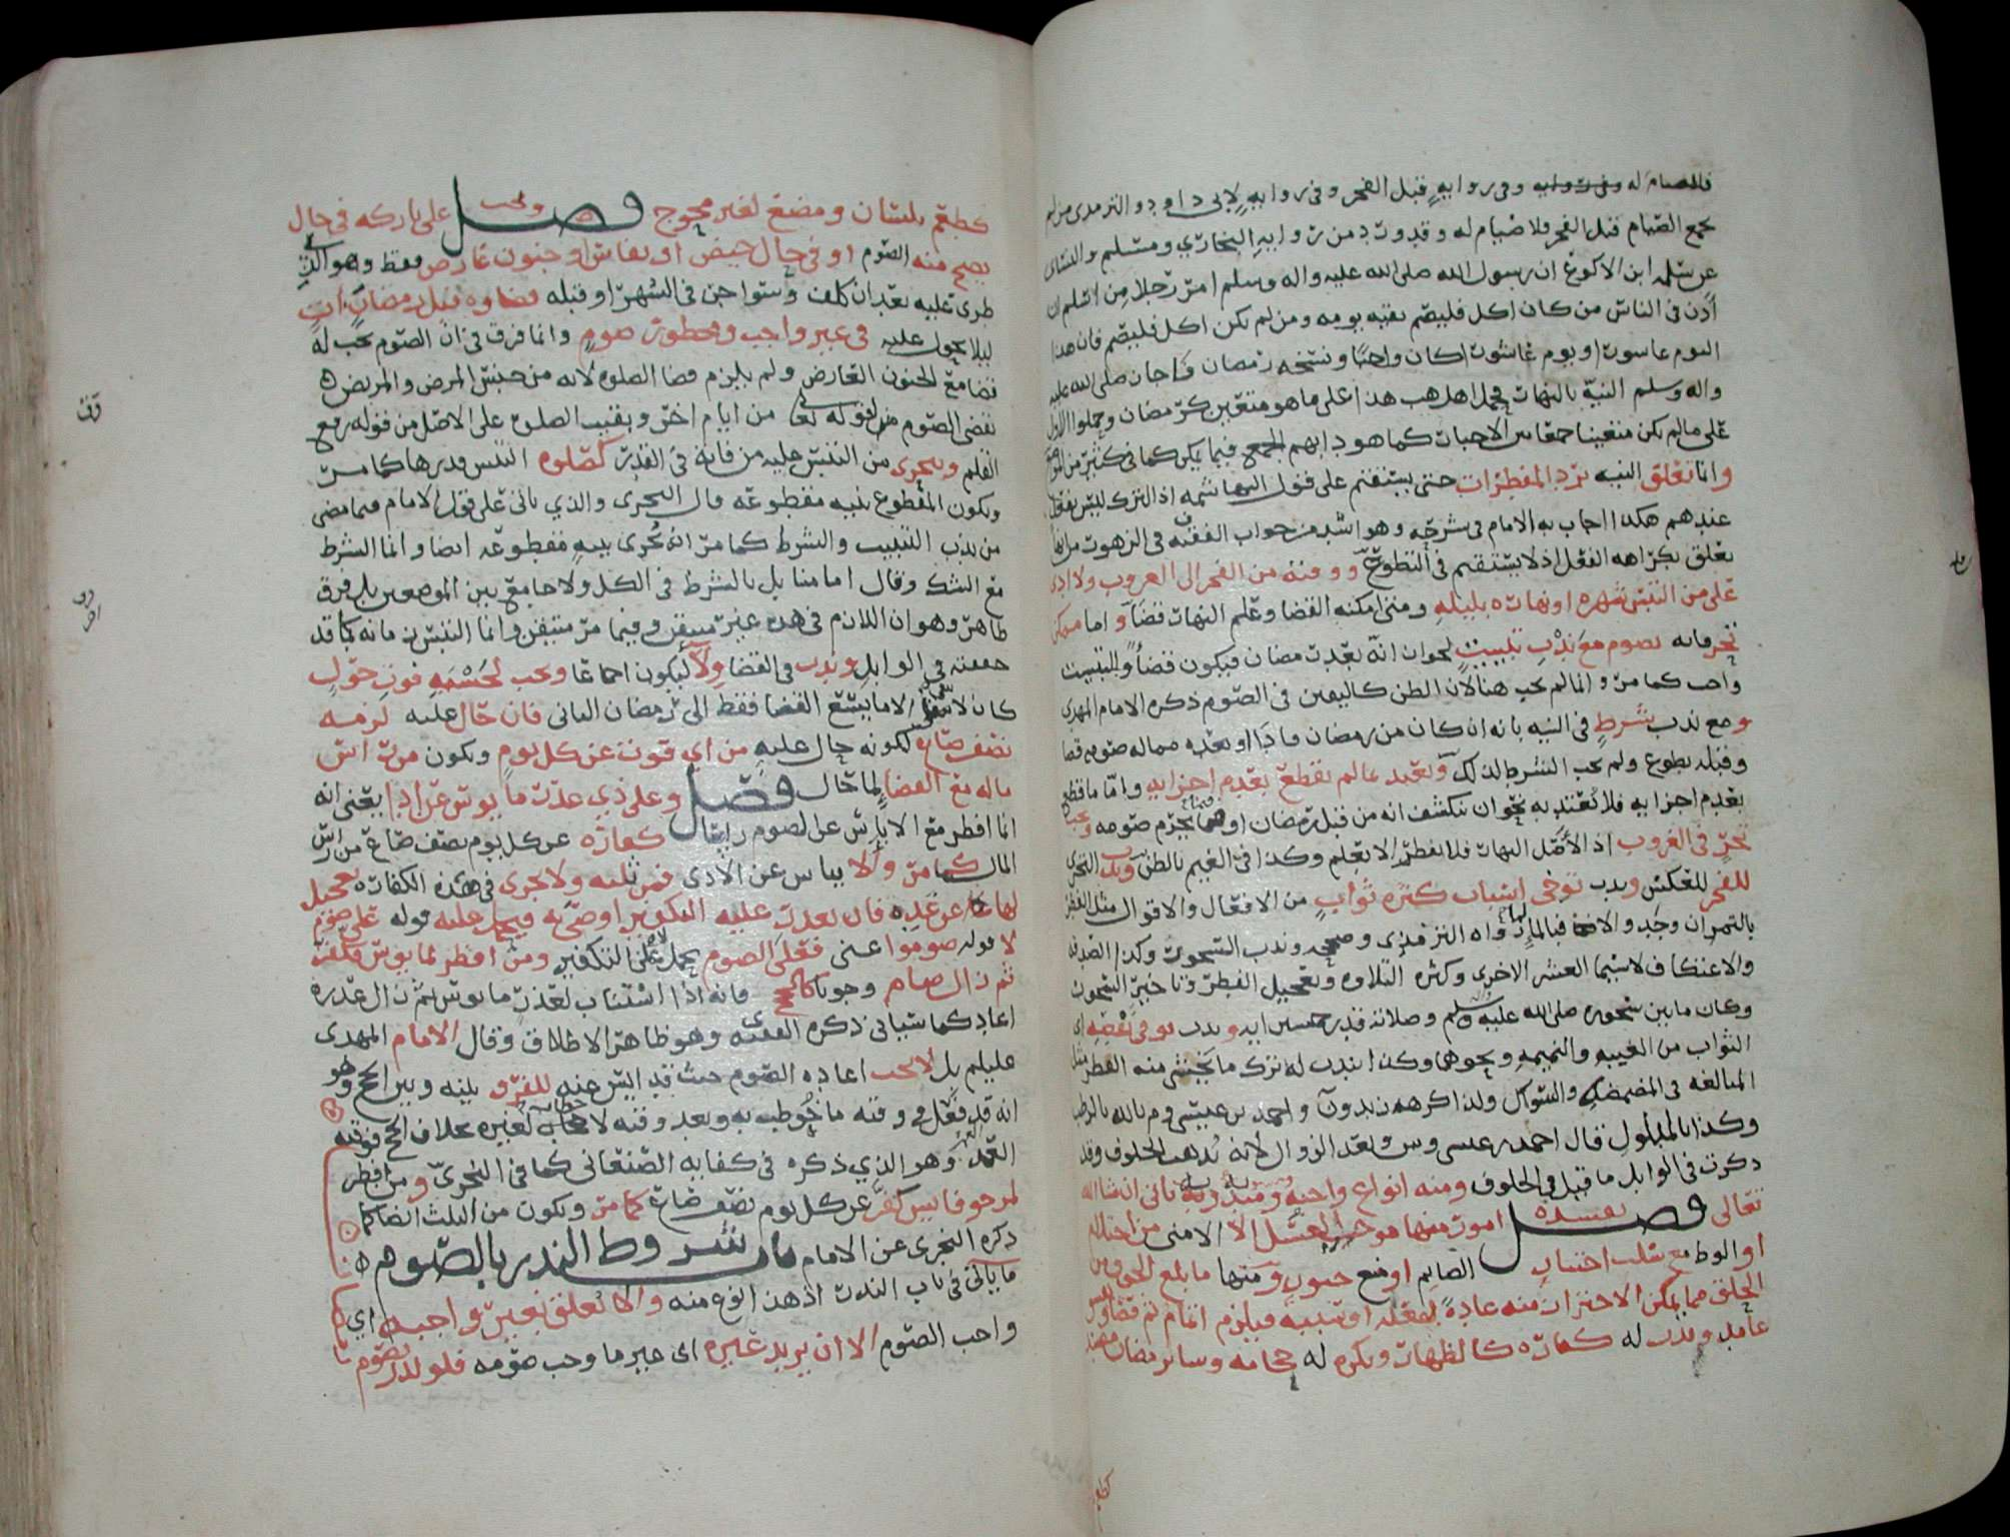 فلا صيام له وفي رواية قبل الفجر وفي رواية لابي داود والترمذي من لم
يجمع الصيام قبل الفجر فلا صيام له وقد ورد من رواية البخاري ومسلم والنسائي
عن سلمه ابن الاكوع ان رسول الله صلى الله عليه واله وسلم امر رجلا من اسلم ان
اذن في الناس من كان اكل فليصم بقيه يومه ومن لم يكن اكل فليصم فان هذا
اليوم عاشورا ويوم عاشورا كان واجبا ونسخه رمضان فاجاز صلى الله عليه
واله وسلم النيّة بالنهار فحمل اهل المذهب هذا على ما هو متعين كرمضان وحملوا الاول
على مالم يكن متعينا جمعا بين الاخبار كما هو دابهم فيما يكن كما في كثير من
وانما تعلق النيه برد المفطرات حتى يستقيم على قول البهاشمه اذ الترك ليس بفعل
عندهم هكذا اجاب به الامام في شرحه وهو اشد من جواب الفقيه ف في الزهور من انها
تعلق بكراهه الفعل اذ لا يستقيم في التطوع ووقته من الفجر الى الغروب ولا اذى
على من التبس شهره او نهاره بليله ومتى امكنه القضا وعلم النهار قضا واما ممكن
تحر فانه يصوم مع ندب تبييت لجواز انه بعد رمضان فيكون قضاً والتبييت
واجب كما مر وانما لم يجب هنا لان الظن كاليقين في الصوم ذكره الامام المهدي
ومع ندب شرط في النيه بانه ان كان من رمضان فاداً او بعده مما له صومه قضا
وقبله تطوع ولم يجب الشرط لذلك وبعيد مالم نقطع بعدم اجزايه واما ما قطع
بعدم اجزايه فلا تعتد به نحو ان ينكشف انه من قبل رمضان او فيما يحرم صومه ويجب
تحرّ في الغروب اذ الأصل النهار فلا يفطر الا بعلم وكذا في الغيم بالظن وندب التحري
للفجر للعكس وندب توخي اسباب كثره ثواب من الافعال والاقوال مثل الفطر
بالتمر ان وجد والا فبالماء رواه الترمذي وصححه وندب السحور وكذا الصدقه
والاعتكاف لاسيما العشر الاخرى وكثره التلاوه وتعجيل الفطر وتاخير السحور
وكان مابين سحوره صلى الله عليه وسلم وصلاته قدر خمسين ايه وندب توقي نقصه اي
الثواب من الغيبه والنميمه ونحوهما وكذا يندب له ترك ما يخشى منه الفطر مثل
المبالغه في المضمضه والسواك ولذا اكرهه زيد ون واحمد بن عيسى وم بالله بالرطب
وكذا بالمبلول قال احمد بن عيسى وش وبعد الزوال لانه يذهب الخلوف وقد
ذكرت في الوابل ما قيل في الخلوف ومنه انواع واجبه ومندوبه ياتي ان شا الله
تعالى فصل يفسده امور منها موجب الغسل الا الامنى من احتلام
او الوطا مع سلب اختيار الصايم او مع جنون ومنها ما بلع الجوف من
الحلق مما يمكن الاحتراز منه عادة بفعله او سببه فيلزم اتمام ثم قضا وفسق
عامد وندب له كفاره كالظهار ويكره له حجامه وساير رمضان
كطعم بلسان ومضغ لغير محوج فصل ويجب على تاركه في حال
يصح منه الصوم او في حال حيض او نفاس او جنون عارض فقط وهو الذي
طرى عليه بعد ان كلف وسوا جن في الشهر او قبله قضاوه قبل رمضان آت
ليلا يحول عليه في غير واجب ومحظور صوم وانما فرق في ان الصوم يجب له
قضا مع الجنون العارض ولم يلزم قضا الصلوه لانه من جنس المرض والمريض
يقضي الصوم لقوله تعالى من ايام اخر وبقيت الصلوه على الاصل من قوله رفع
القلم ويتحرى من التبس عليه من فاته في القدر كصلوه التبس قدرها كما مر
ويكون المقطوع بنيه مقطوعه قال البحري والذي ياتي على قول الامام فيما مضى
من ندب التبييت والشرط كما مر انه تجزى بنيه مقطوعه ايضا وانما الشرط
مع الشك وقال امامنا بل بالشرط في الكل ولا جامع بين الموضعين بل فرق
ظاهر وهو ان اللازم في هذه غير متيقن وفيما مر متيقن وانما التبس زمانه كما قد
حققته في الوابل وندب في القضا ولا ليكون اجماعا ويجب لخشيه فوت حول
كان لا الا ما يسع القضا فقط الى رمضان الثاني فان حال عليه لزمه
نصف صاع لكونه حال عليه من اي قوت عن كل يوم ويكون من راس
ماله مع القضا لما حال فصل وعلى ذي عذر مايوس عن ادا يعني انه
انما افطر مع الاياس عن الصوم رايقا كفاره عن كل يوم نصف صاع من راس
المال كما مر والا يياس عن الاذى فمن ثلثه ولا يجزى في هذه الكفاره تعجيل
لها عن غده فان تعذر عليه التكفير اوصى به فيحمل عليه قوله على صوم
لا قوله صوموا عني فعلى الصوم يحمل لا على التكفير ومن افطر لمايوس فكفر
ثم زال صام وجوبا كالحج فانه اذا استناب لعذر مايوس ثم زال عذره
اعاد كما سياتي ذكره الفقيه ى وهو ظاهر الاطلاق وقال الامام المهدي
عليلم بل لا يجب اعاده الصوم حيث قد ايس عنه للفرق بينه وبين الحج وهو
انه قد فعل في وقته ما خوطب به وبعد وقته لا خطاب لغيره بخلاف الحج فوقته
العمر وهو الذي ذكره في كفايه الصنعاني كما في البحري ومن افطر
لمرجو فايس كفر عن كل يوم نصف صاع كما مر ويكون من الثلث ايضا كما
ذكره البحري عن الامام باب شروط النذر بالصوم
ما ياتي في باب النذر اذ هذا نوع منه والا تعلق بغير واجبه اي
واجب الصوم الا ان يريد غيره اي غير ما وجب صومه فلو نذر بصوم